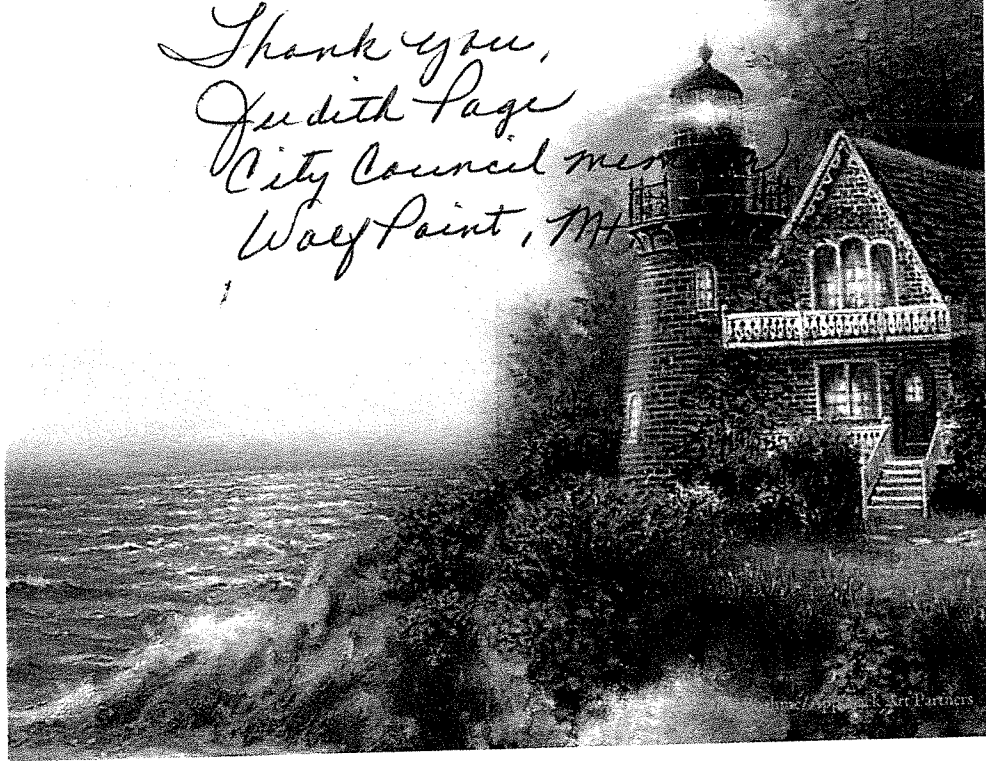 Thank you,
Judith Page
City Council member
Wolf Point, Mt.
Art Partners